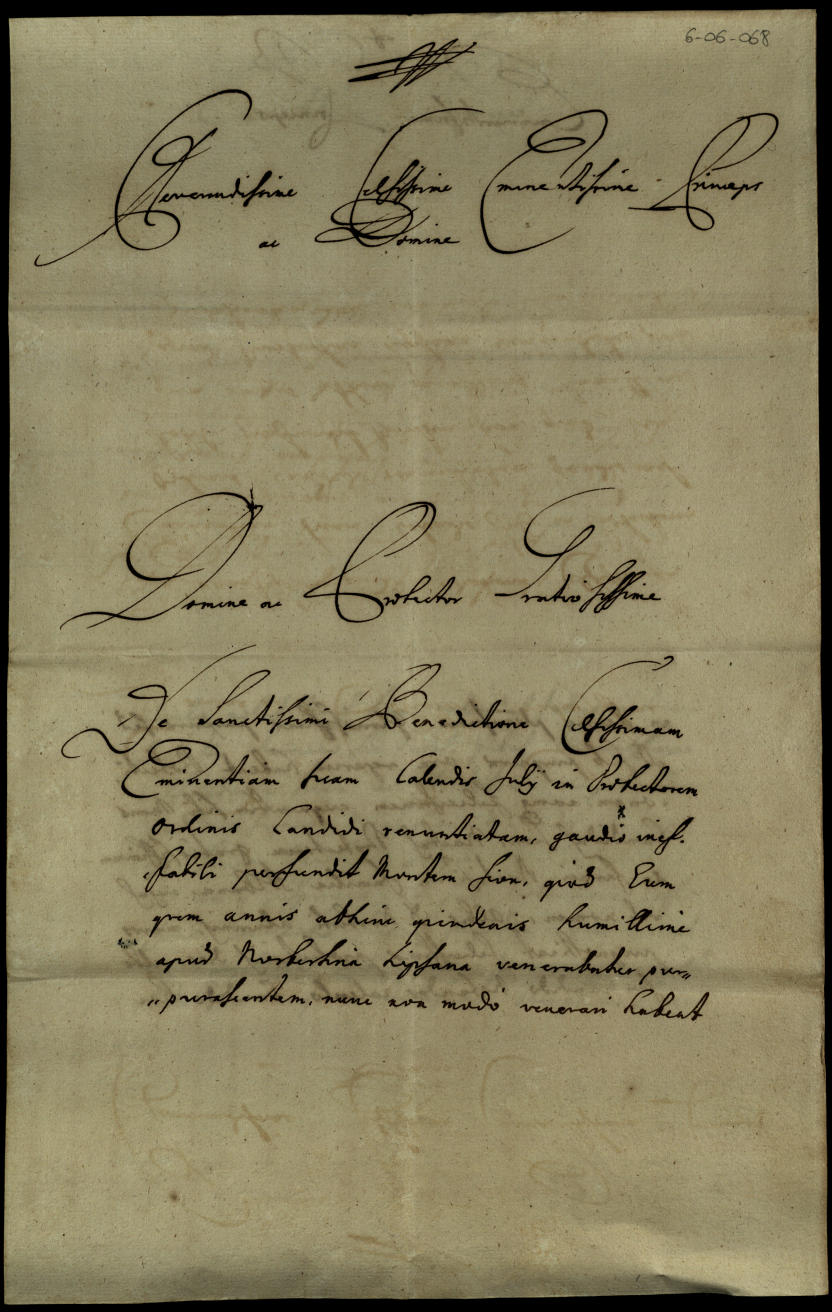 6-06-068
Reverendissime Celsissime Eminentissime Princeps
ac Domine
Domine ac Protector Gratiosissime
De Sanctissimi Benedictione Celsissimam
Eminentiam suam Calendis Julij in Protectorem
Ordinis Candidi renuntiatam, gaudio inef-
fabili perfundit Montem Sion, quod Eum
quem annis abhinc quindenis humillime
apud Norbertina Lipsana venerabatur pur„
„purascentem, nunc non modò venerari habeat